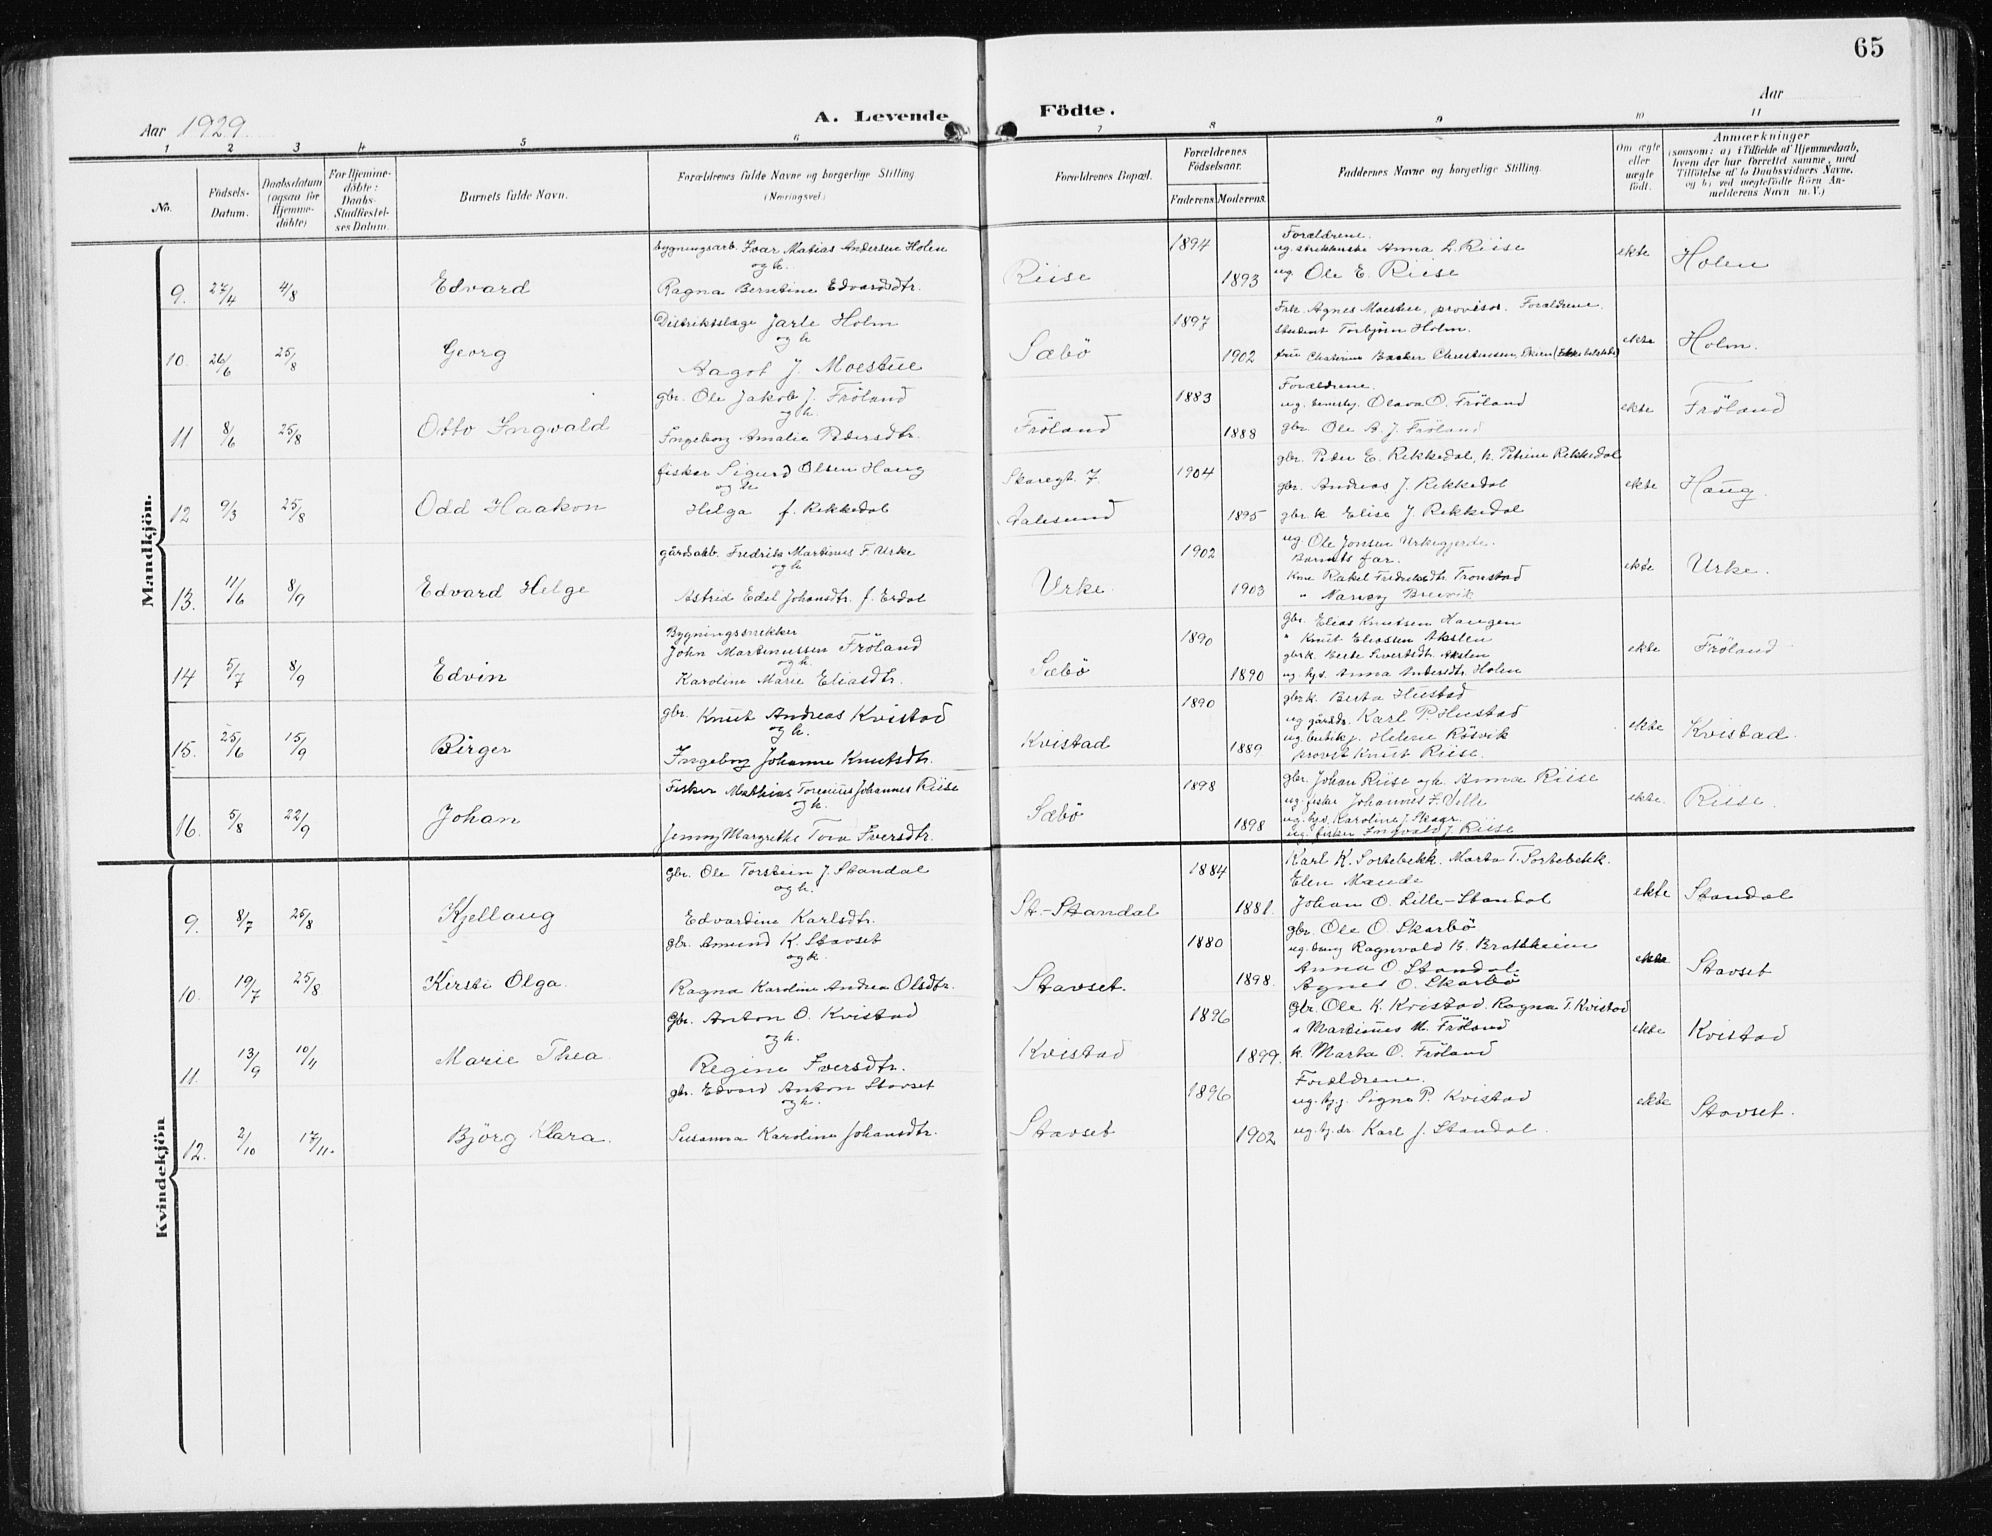 65
Aar 1929.
A. Levende Födte.
Aar
1 2 3 4 5 6 7 8 9 10 11
No.
Födsels-Datum.
Daabsdatum (ogsaa for Hjemme-döbte)
For Hjemme-döbte: Daabs-Stadfæstel-ses Datum.
Barnets fulde Navn.
Forældrenes fulde Navne og borgerlige Stilling (Næringsvei)
Forældrenes Bopæl.
Forældrenes Födselsaar.
Faderens. Moderens.
Faddernes Navne og borgerlige Stilling.
Om ægte eller uægte födt.
Anmærkninger
(saasom: a) i Tilfælde af Hjemmedaab, hvem der har forrettet samme, med Tilföielse af to Daabsvidners Navne, og b) ved uægtefödte Börn An-melderens Navn m. V.)
Mandkjön.
bygningsarb. Ivar Matias Andersen Holen
og h.
9. 27/4 4/8 Edvard Ragna Berntine Edvardsdtr. Riise 1894 1893
Forældrene.
ug. Anna L. Riise
ug. Ole E. Riise
ekte Holen
Distriktslæge Jarle Holm
og h
10. 26/6 25/8 Georg Aagot J. Moestue Sæbö 1897 1902
Frk. Agnes Moestue, provisor. Forældrene.
Student Torbjörn Holm.
ekte Holm.
gbr. Ole Jakob J. Fröland
og h.
11 8/6 25/8 Otto Ingvald Ingeborg Amalie Pedersdtr. Fröland 1883 1888
Forældrene.
ug. Olava O. Fröland
gbr. Ole A. J. Fröland
ekte Fröland
fisker Sigurd Olsen Haug
og h
12 9/3 25/8 Odd Haakon Helga f. Rekkedal Skaregt. 7 Aalesund 1904 1895
gbr. Peder E. Rekkedal, h. Petrine Rekkedal
gbr. Andreas J. Rekkedal
gbr. k Elise J. Rekkedal
ekte Haug.
gårdarb. Fredrik Martinus F. Urke
og h
13. 11/6 8/9 Edvard Helge Astrid Edel Johansdtr. f. Erdal Urke. 1902 1903
ug. Ole Jonsen Urkegjerde.
Barnets far.
Kone Rakel Fredriksdtr. Tronstad
" Nancy Breivik
ekte Urke.
Bygningssnekker
John Martinussen Fröland
og h.
14 5/7 8/9 Edvin Karoline Marie Eliasdtr. Sæbö 1890 1890
gbr. Elias Knutsen Haugen
" Knut Eliassen Akslen
gbr.k. Beate Sivertsdtr. Akslen
ug. hjs. Anna Andersdtr. Holen
ekte Fröland
gbr. Knut Andreas Kvistad
og h.
15. 25/6 15/9 Birger Ingeborg Johanne Knutsdtr. Kvistad 1890 1889
gbr.k. Berta Hustad
ug. gårdb. Karl P. Hustad
ug. butikj. Helene Rösvik
Knut Riise.
ekte Kvistad.
Fisker Mathias Torenius Johannes Riise
og h.
16. 5/8 22/9 Johan Jenny Margrethe Tora Iversdtr. Sæbö 1898 1898
gbr. Johan Riise og h. Anna Riise
ug. fisker Johannes I. Velle
ug. hjs. Karoline J. Skagr.
ug. fisker Ingvald J. Riise
ekte. Riise.
Kvindekjön
gbr. Ole Torstein J. Standal
og h.
9. 8/7 25/8 Kjellaug Edvardine Karlsdtr. St-Standal 1884 1881.
Karl K. Sortebekk. Marta T. Sortebekk.
Elen Maude
Johan O. Lille-Standal
ekte Standal
gbr. Amund K. Stavset
og h.
10. 19/7 25/8 Kirsti Olga. Ragna Karoline Andrea Olsdtr. Stavset. 1880 1898.
gbr. Ole O. Skarbö
ug. Ragnvald B. Brattheim
Anna O. Standal.
Agnes O. Skarbö
ekte Stavset
Gbr. Anton O. Kvistad
og h.
11. 13/9 10/11 Marie Thea. Regine Iversdtr. Kvistad 1896 1899.
gbr. Ole K. Kvistad. Ragna T. Kvistad
" Martinus M. Fröland
k. Marta O. Fröland
ekte Kvistad
gbr. Edvard Anton Stavset
og h.
12. 2/10 17/11. Björg Klara. Susanna Karoline Johansdtr. Stavset 1896 1902
Forældrene.
ug. hjg. Signe P. Kvistad
ug. hj. dr. Karl J. Standal.
ekte Stavset.